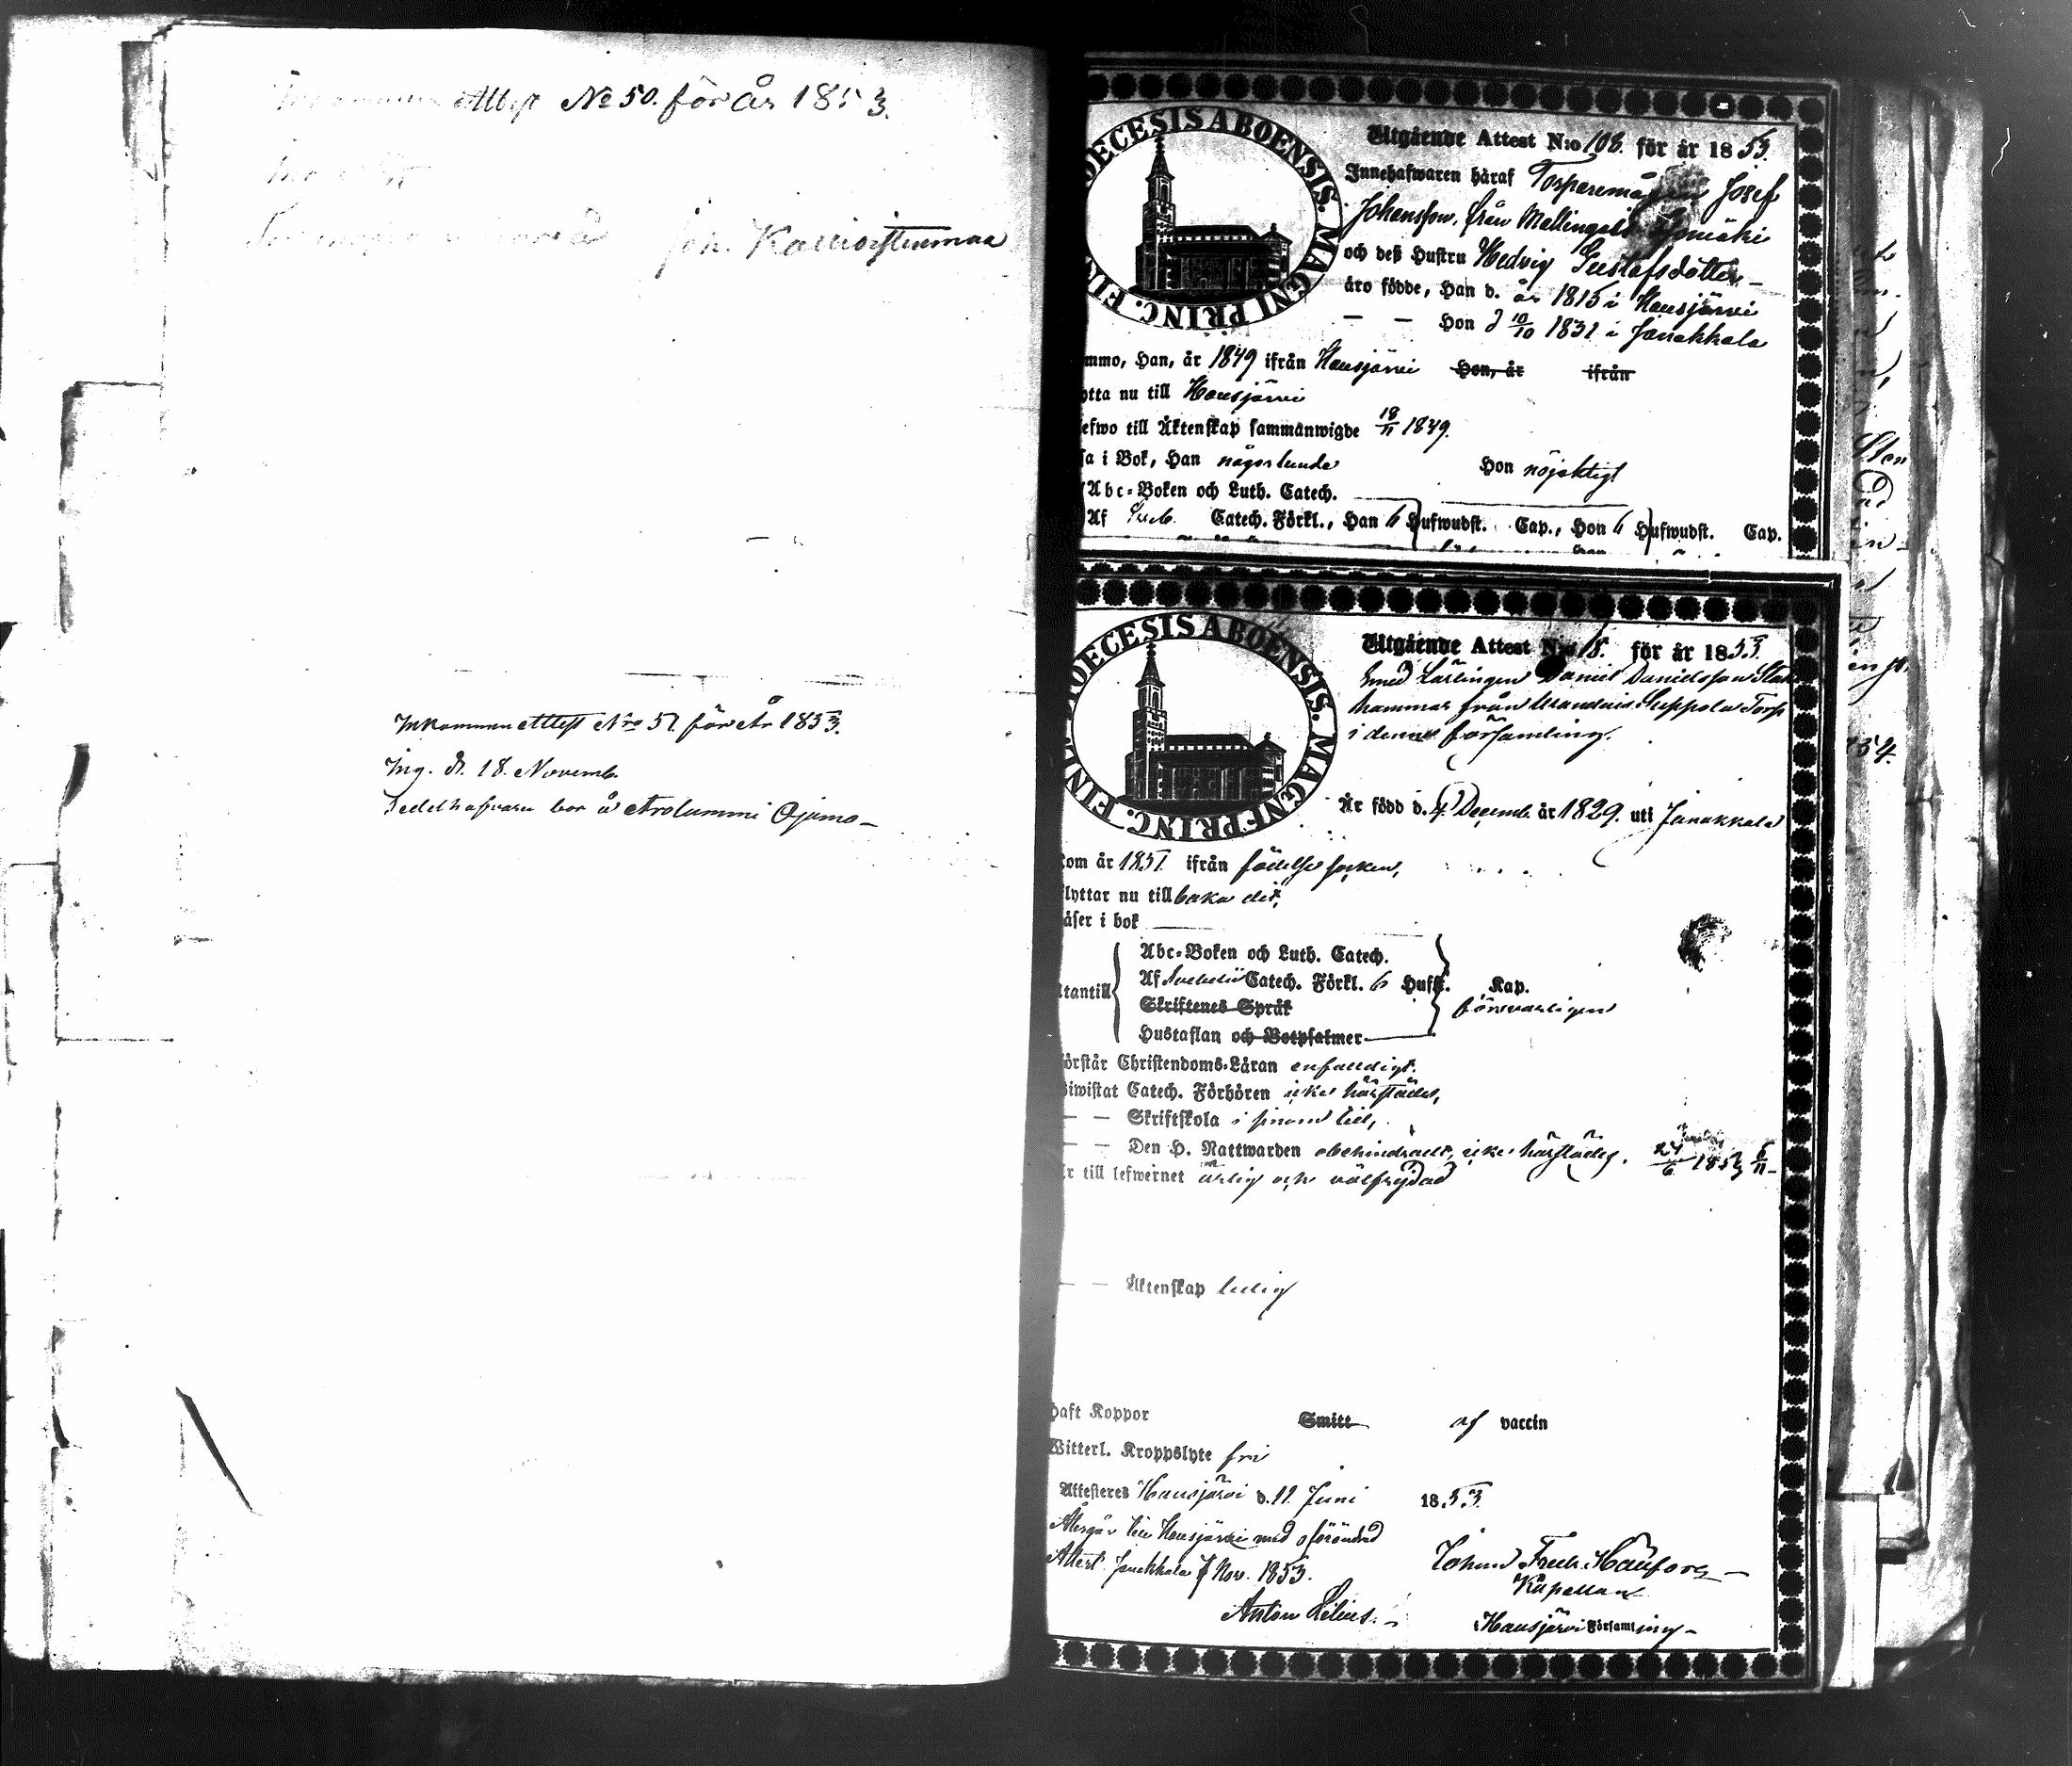 Inkommen Attest No 50. för år 1853.
Joh. Kallioistenmaa
Inkommen Attest Nro 51. för År 1853.
Ing. d. 18. Novemb.
Sedelhafvaren bor å Arolammi Ojamo –
DIOECESIS ABOENSIS. MAGNI PRINC. FINL.
Utgående Attest N:o 108. för år 1853.
Innehafwaren häraf Torparemågen Josef
Johansson, från Mallingals
och deß Hustru Hedvig Gustafsdotter –
äro födde, Han d. år 1815 i Hausjärvi
— — Hon d 10/10 1831 i Janakkala
mmo, Han, år 1849 ifrån Hausjärvi Hon, år ifrån
ytta nu till Hausjärvi
efwo till Äktenskap sammanwigde 18/11 1849.
sa i Bok, Han någorlunda Hon nöjaktigt
Abc-Boken och Luth. Catech.
Af Sveb. Catech. Förkl., Han 6 Hufwudst. Cap., Hon 6 Hufwudst. Cap.
DIOECESIS ABOENSIS. MAGNI PRINC. FINL.
Utgående Attest N:o 18. för år 1853
Smed Lärlingen Daniel Danielsson
hammar från Seppola Torp
i denna församling.
Är född d. 4 Decemb. år 1829. uti Janakkala
kom år 1851 ifrån födelse socken,
flyttar nu till baka dit,
läser i bok
Abc-Boken och Luth. Catech.
utantill Af Svebelii Catech. Förkl. 6 Hufst. Kap.
Skriftenes Språk försvarligen
Hustaflan och Botpsalmer
förstår Christendoms-Läran enfaldigt.
biwistat Catech. Förhören icke härstädes,
— — Skriftskola i sinom tid,
— — Den H. Nattwarden obehindradt, icke härstädes. 24/6 1853 6/11
är till lefwernet ärlig och välfrejdad
— — Äktenskap ledig
haft Koppor Smitt af vaccin
Witterl. Kroppslyte fri
Attesteres Hausjärvi d. 11. Juni 1853
Återgår till Hausjärvi med oförändrad
Attest. Janakkala Nov. 1853.
Anton Lilius.
Kapellan
Hausjärvi Församling –